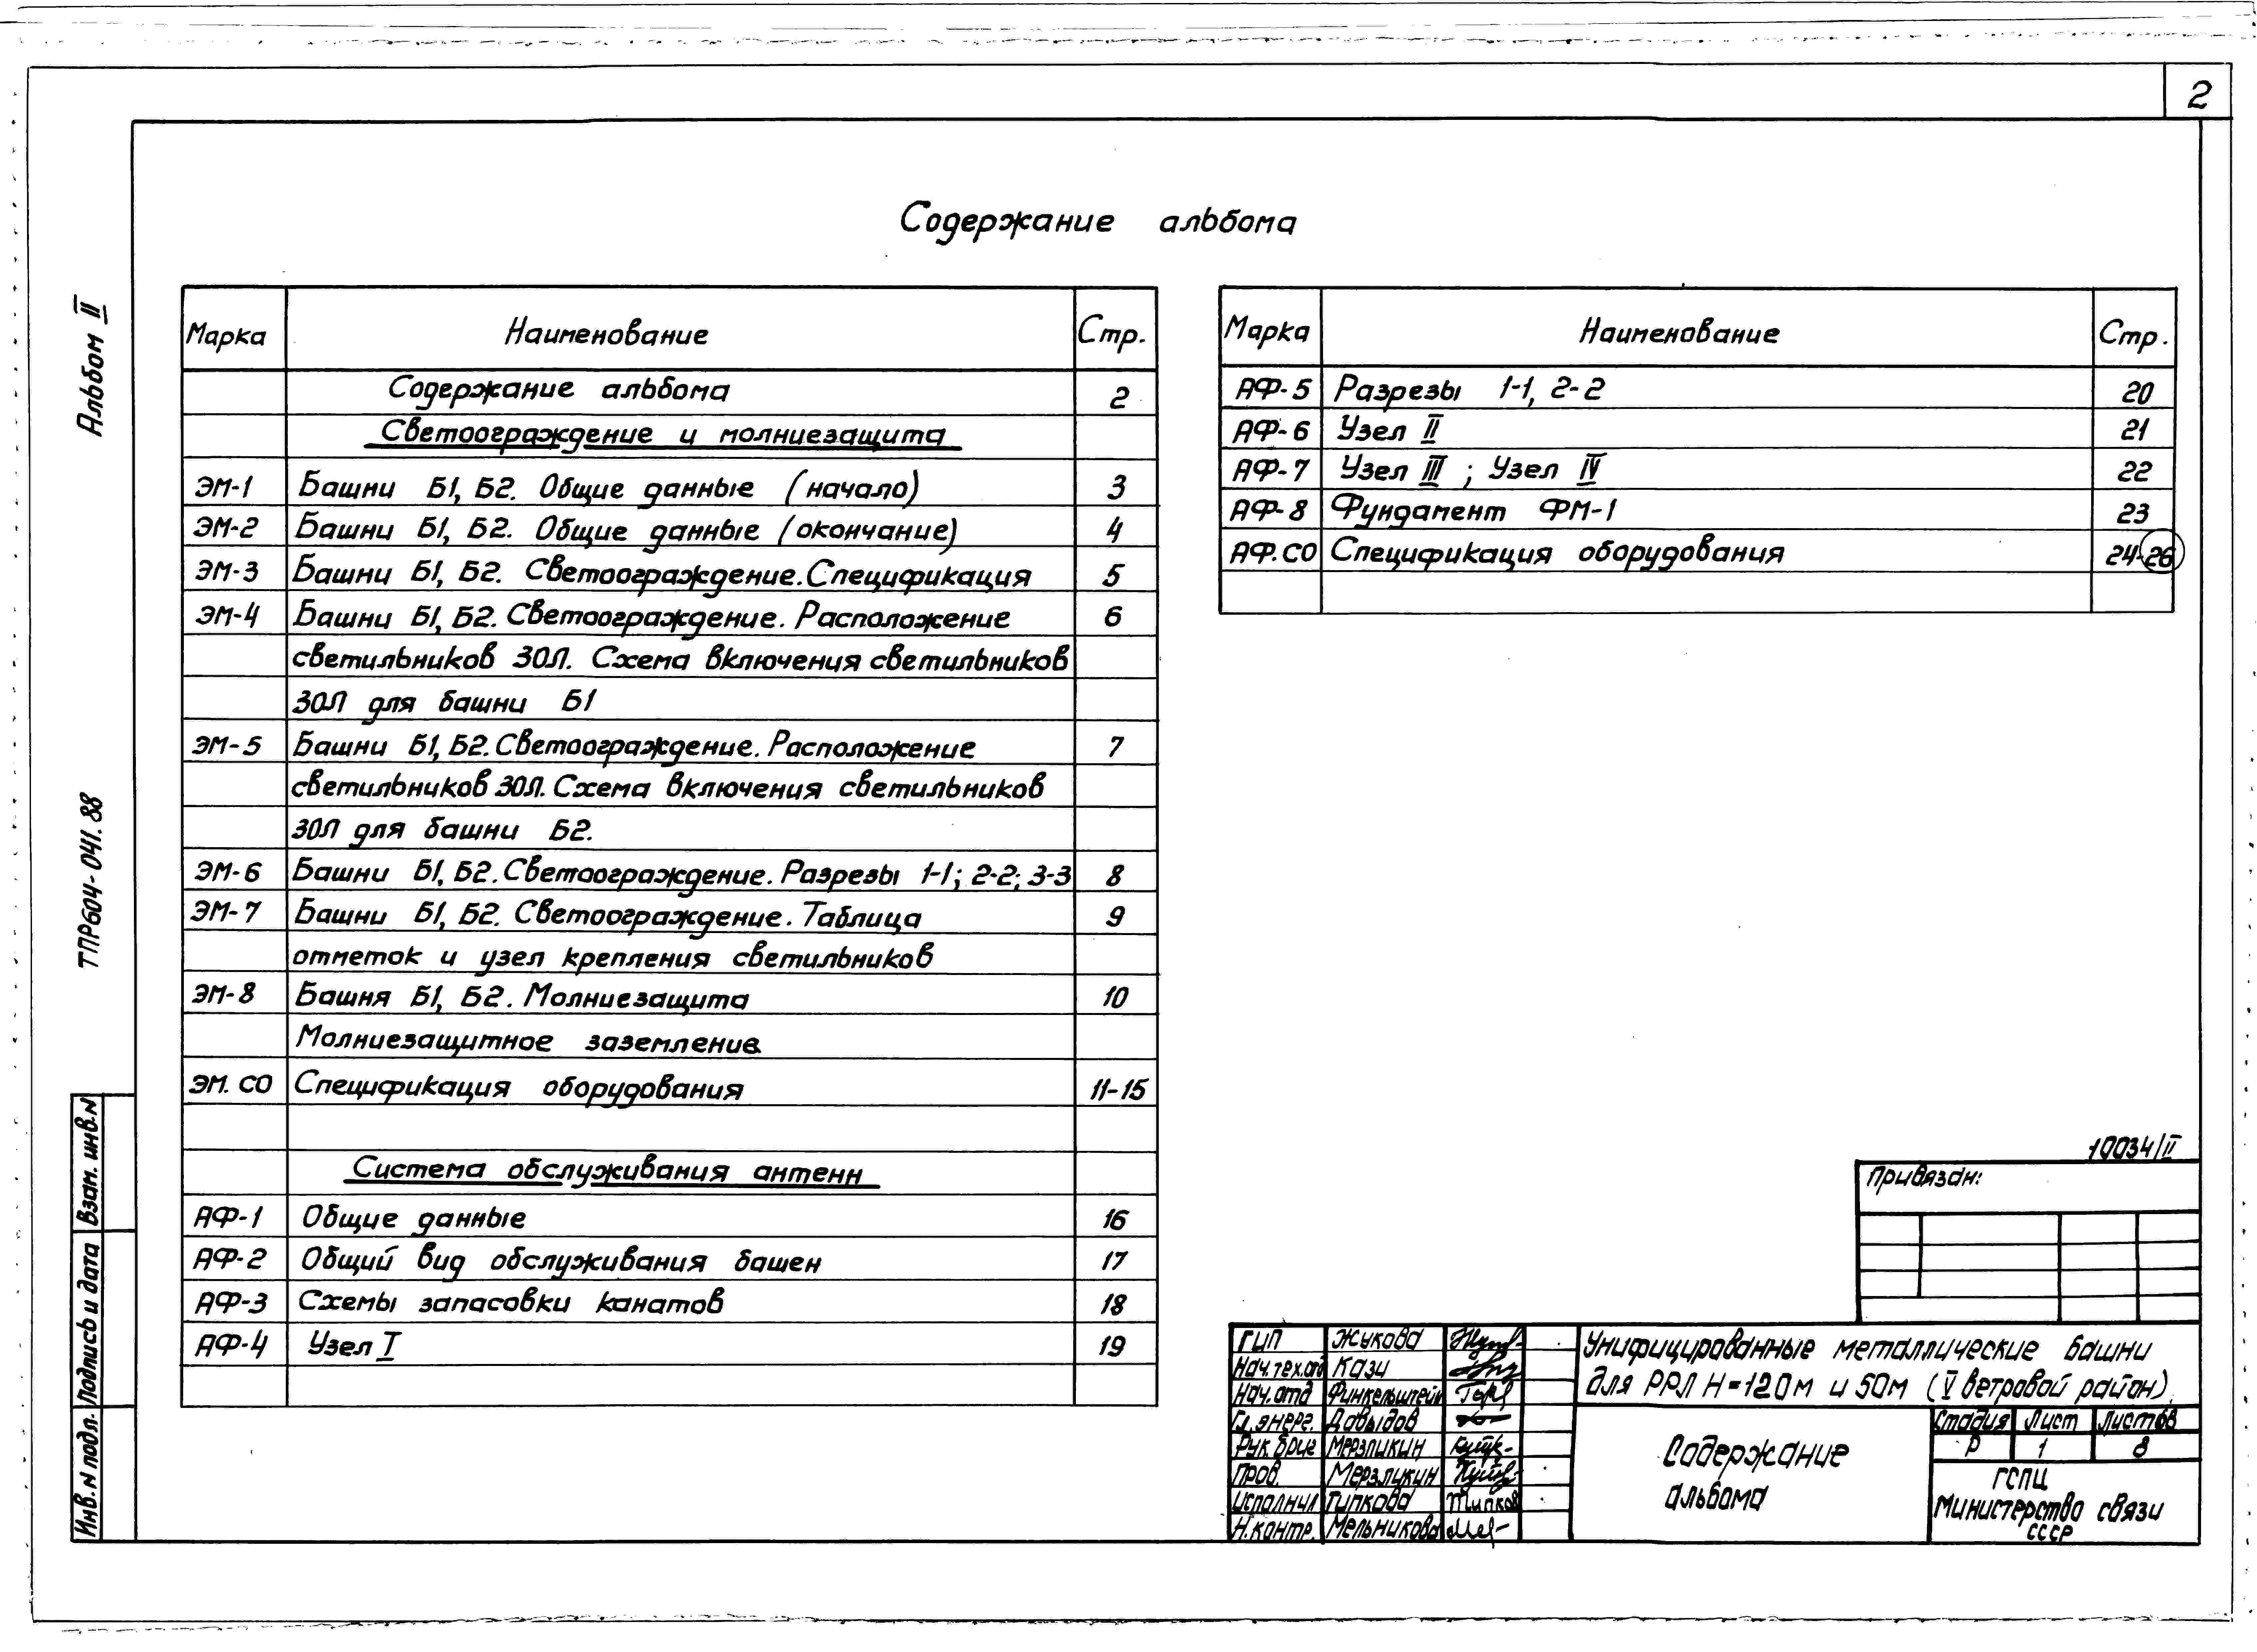 2
Содержание альбома
Альбом II
ТПР604-041.88
Марка Наименование Стр.
Содержание альбома 2
Светоограждение и молниезащита
ЭМ-1 Башни Б1, Б2. Общие данные (начало) 3
ЭМ-2 Башни Б1, Б2. Общие данные (окончание) 4
ЭМ-3 Башни Б1, Б2. Светоограждение. Спецификация 5
ЭМ-4 Башни Б1, Б2. Светоограждение. Расположение 6
светильников ЗОЛ. Схема включения светильников
ЗОЛ для башни Б1
ЭМ-5 Башни Б1, Б2. Светоограждение. Расположение 7
светильников ЗОЛ. Схема включения светильников
ЗОЛ для башни Б2.
ЭМ-6 Башни Б1, Б2. Светоограждение. Разрезы 1-1; 2-2; 3-3 8
ЭМ-7 Башни Б1, Б2. Светоограждение. Таблица 9
отметок и узел крепления светильников
ЭМ-8 Башня Б1, Б2. Молниезащита 10
Молниезащитное заземление
ЭМ.СО Спецификация оборудования 11-15
Система обслуживания антенн
АФ-1 Общие данные 16
АФ-2 Общий вид обслуживания башен 17
АФ-3 Схемы запасовки канатов 18
АФ-4 Узел I 19
Марка Наименование Стр.
АФ-5 Разрезы 1-1, 2-2 20
АФ-6 Узел II 21
АФ-7 Узел III ; Узел IV 22
АФ-8 Фундамент ФМ-1 23
АФ.СО Спецификация оборудования 24-26
Взам. инв.N
Подпись и дата
Инв.N подл.
10034/II
Привязан:
ГИП Жукова
Нач.тех.отд Кази
Нач.отд Финкельштейн
Гл.энерг. Давыдов
Рук.бриг Мерзликин
Пров. Мерзликин
Исполнил Типкова
Н.контр. Мельникова
Унифицированные металлические башни
для РРЛ H=120м и 50м (V ветровой район).
Содержание
альбома
Стадия Лист Листов
Р 1 8
ГСПИ
Министерство связи
СССР